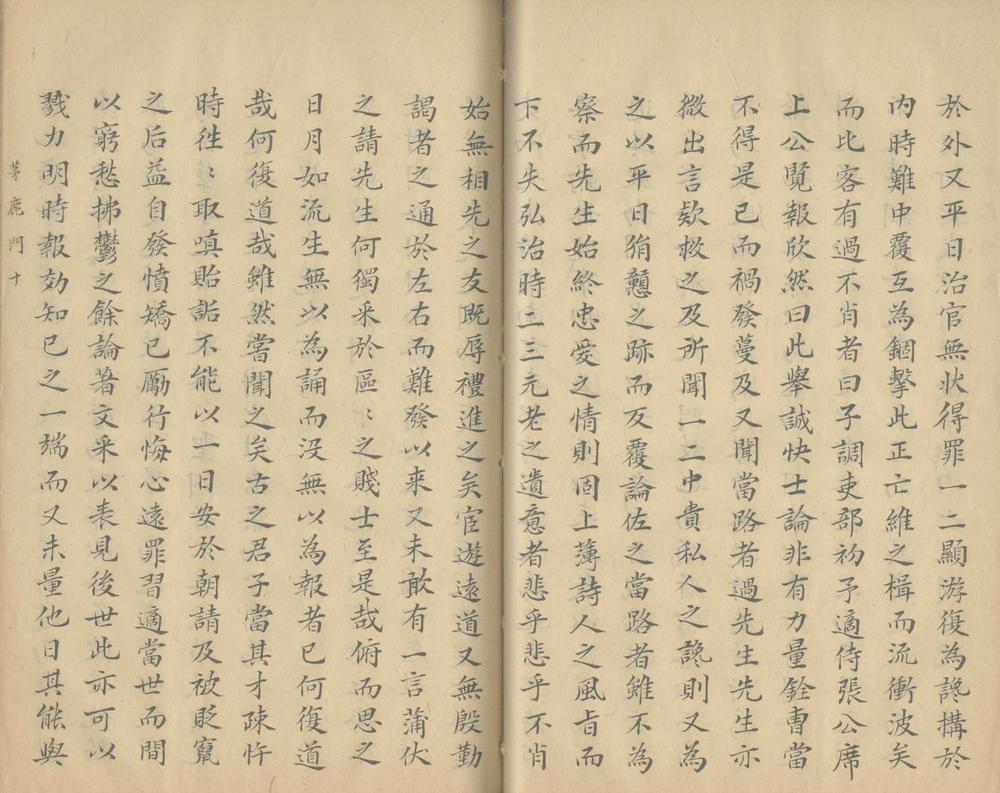 於外又平日治官無狀得罪一二顯游復為讒搆於
內時難中覆互為錮擊此正亡維之楫而流衝波矣
而比客有過不肖者曰子調吏部初予適侍張公席
上公覽報欣然曰此舉誠快士論非有力量銓曹當
不得是已而禍發蔓及又聞當路者過先生先生亦
微出言欵救之及所聞一二中貴私人之讒則又為
之以平日狷戇之跡而反覆論佐之當路者雖不為
察而先生始終忠愛之情則固上薄詩人之風旨而
下不失弘治時二三元老之遺意者悲乎悲乎不肖
始無相先之友既辱禮進之矣宦遊遠道又無殷勤
謁者之通於左右而難發以来又未敢有一言蒲伏
之請先生何獨采於區〻之賤士至是哉俯而思之
日月如流生無以為誦而没無以為報者已何復道
哉何復道哉雖然嘗聞之矣古之君子當其才疎忤
時徃〻取嗔貽詬不能以一日安於朝請及被貶竄
之后益自發憤矯已勵行悔心遠罪習適當世而間
以窮愁拂鬱之餘論著文采以表見後世此亦可以
戮力明時報効知已之一端而又未量他日其能與
茅鹿門十